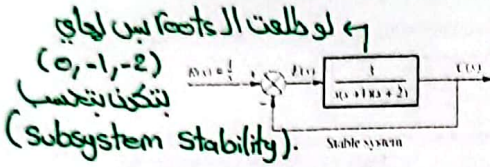 لو طلعت الـ roots بس لهاي
(0, -1, -2)
بتكون بتحسب
(subsystem stability).
R(s) = 1/s
+
E(s)
3
s(s + 1)(s + 2)
C(s)
-
Stable system